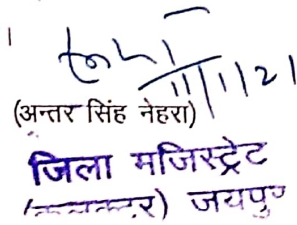 11/1/21
(अन्तर सिंह नेहरा)
जिला मजिस्ट्रेट
जयपुर